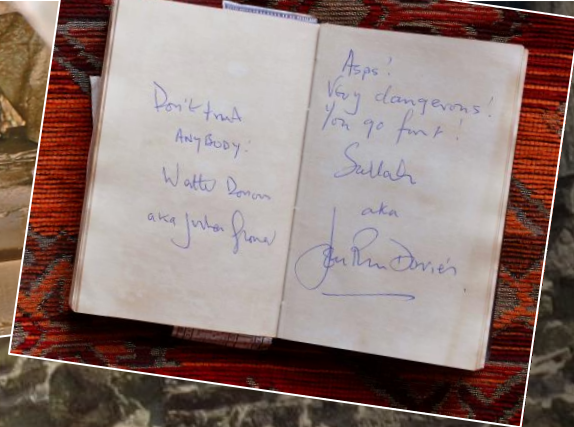 Don't trust
ANYBODY!
Walter Donovan
aka Julian Glover
Asps!
Very dangerous!
You go first!
Sallah
aka
John Rhys Davies